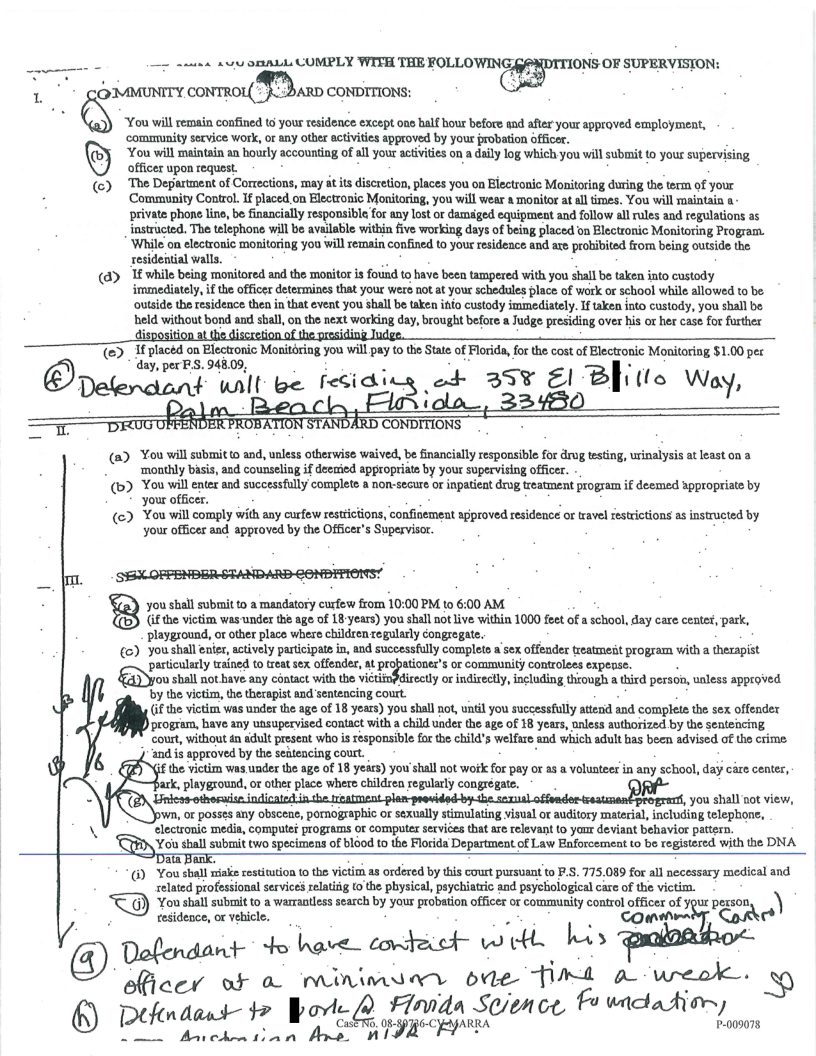 YOU SHALL COMPLY WITH THE FOLLOWING CONDITIONS OF SUPERVISION:
I. COMMUNITY CONTROL ARD CONDITIONS:
(a) You will remain confined to your residence except one half hour before and after your approved employment,
community service work, or any other activities approved by your probation officer.
(b) You will maintain an hourly accounting of all your activities on a daily log which you will submit to your supervising
officer upon request.
(c) The Department of Corrections, may at its discretion, places you on Electronic Monitoring during the term of your
Community Control. If placed on Electronic Monitoring, you will wear a monitor at all times. You will maintain a
private phone line, be financially responsible for any lost or damaged equipment and follow all rules and regulations as
instructed. The telephone will be available within five working days of being placed on Electronic Monitoring Program.
While on electronic monitoring you will remain confined to your residence and are prohibited from being outside the
residential walls.
(d) If while being monitored and the monitor is found to have been tampered with you shall be taken into custody
immediately, if the officer determines that your were not at your schedules place of work or school while allowed to be
outside the residence then in that event you shall be taken into custody immediately. If taken into custody, you shall be
held without bond and shall, on the next working day, brought before a Judge presiding over his or her case for further
disposition at the discretion of the presiding Judge.
(e) If placed on Electronic Monitoring you will pay to the State of Florida, for the cost of Electronic Monitoring $1.00 per
day, per F.S. 948.09.
(f) Defendant will be residing at 358 El B illo Way,
Palm Beach, Florida, 33480
II. DRUG OFFENDER PROBATION STANDARD CONDITIONS
(a) You will submit to and, unless otherwise waived, be financially responsible for drug testing, urinalysis at least on a
monthly basis, and counseling if deemed appropriate by your supervising officer.
(b) You will enter and successfully complete a non-secure or inpatient drug treatment program if deemed appropriate by
your officer.
(c) You will comply with any curfew restrictions, confinement approved residence or travel restrictions as instructed by
your officer and approved by the Officer's Supervisor.
III. SEX OFFENDER STANDARD CONDITIONS:
(a) you shall submit to a mandatory curfew from 10:00 PM to 6:00 AM
(b) (if the victim was under the age of 18 years) you shall not live within 1000 feet of a school, day care center, park,
playground, or other place where children regularly congregate.
(c) you shall enter, actively participate in, and successfully complete a sex offender treatment program with a therapist
particularly trained to treat sex offender, at probationer's or community controlees expense.
(d) you shall not have any contact with the victims directly or indirectly, including through a third person, unless approved
by the victim, the therapist and sentencing court.
(if the victim was under the age of 18 years) you shall not, until you successfully attend and complete the sex offender
program, have any unsupervised contact with a child under the age of 18 years, unless authorized by the sentencing
court, without an adult present who is responsible for the child's welfare and which adult has been advised of the crime
and is approved by the sentencing court.
(f) (if the victim was under the age of 18 years) you shall not work for pay or as a volunteer in any school, day care center,
park, playground, or other place where children regularly congregate.
(g) Unless otherwise indicated in the treatment plan provided by the sexual offender treatment program, you shall not view,
own, or posses any obscene, pornographic or sexually stimulating visual or auditory material, including telephone,
electronic media, computer programs or computer services that are relevant to your deviant behavior pattern.
(h) You shall submit two specimens of blood to the Florida Department of Law Enforcement to be registered with the DNA
Data Bank.
(i) You shall make restitution to the victim as ordered by this court pursuant to F.S. 775.089 for all necessary medical and
related professional services relating to the physical, psychiatric and psychological care of the victim.
(j) You shall submit to a warrantless search by your probation officer or community control officer of your person,
residence, or vehicle.
Community Control
(g) Defendant to have contact with his
officer at a minimum one time a week.
(h) Defendant to ork @ Florida Science Foundation,
Case No. 08-80736-CV-MARRA
P-009078